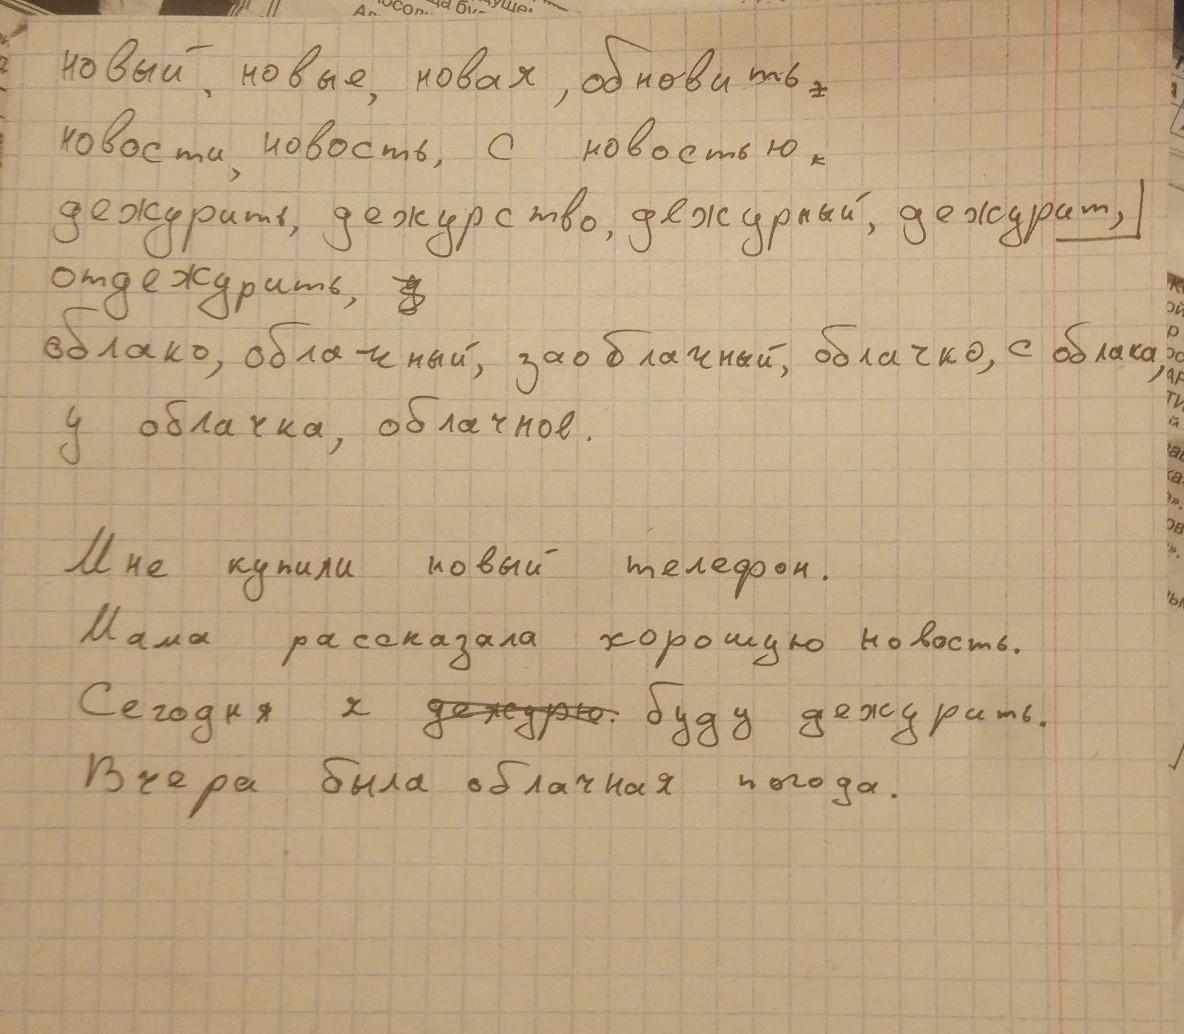 новый, новые, новая, обновить,
новости, новость, с новостью.
дежурить, дежурство, дежурный, дежурит,
отдежурить,
облако, облачный, заоблачный, облачко, с облака,
у облачка, облачное.
Мне купили новый телефон.
Мама рассказала хорошую новость.
Сегодня я дежурю. буду дежурить.
Вчера была облачная погода.